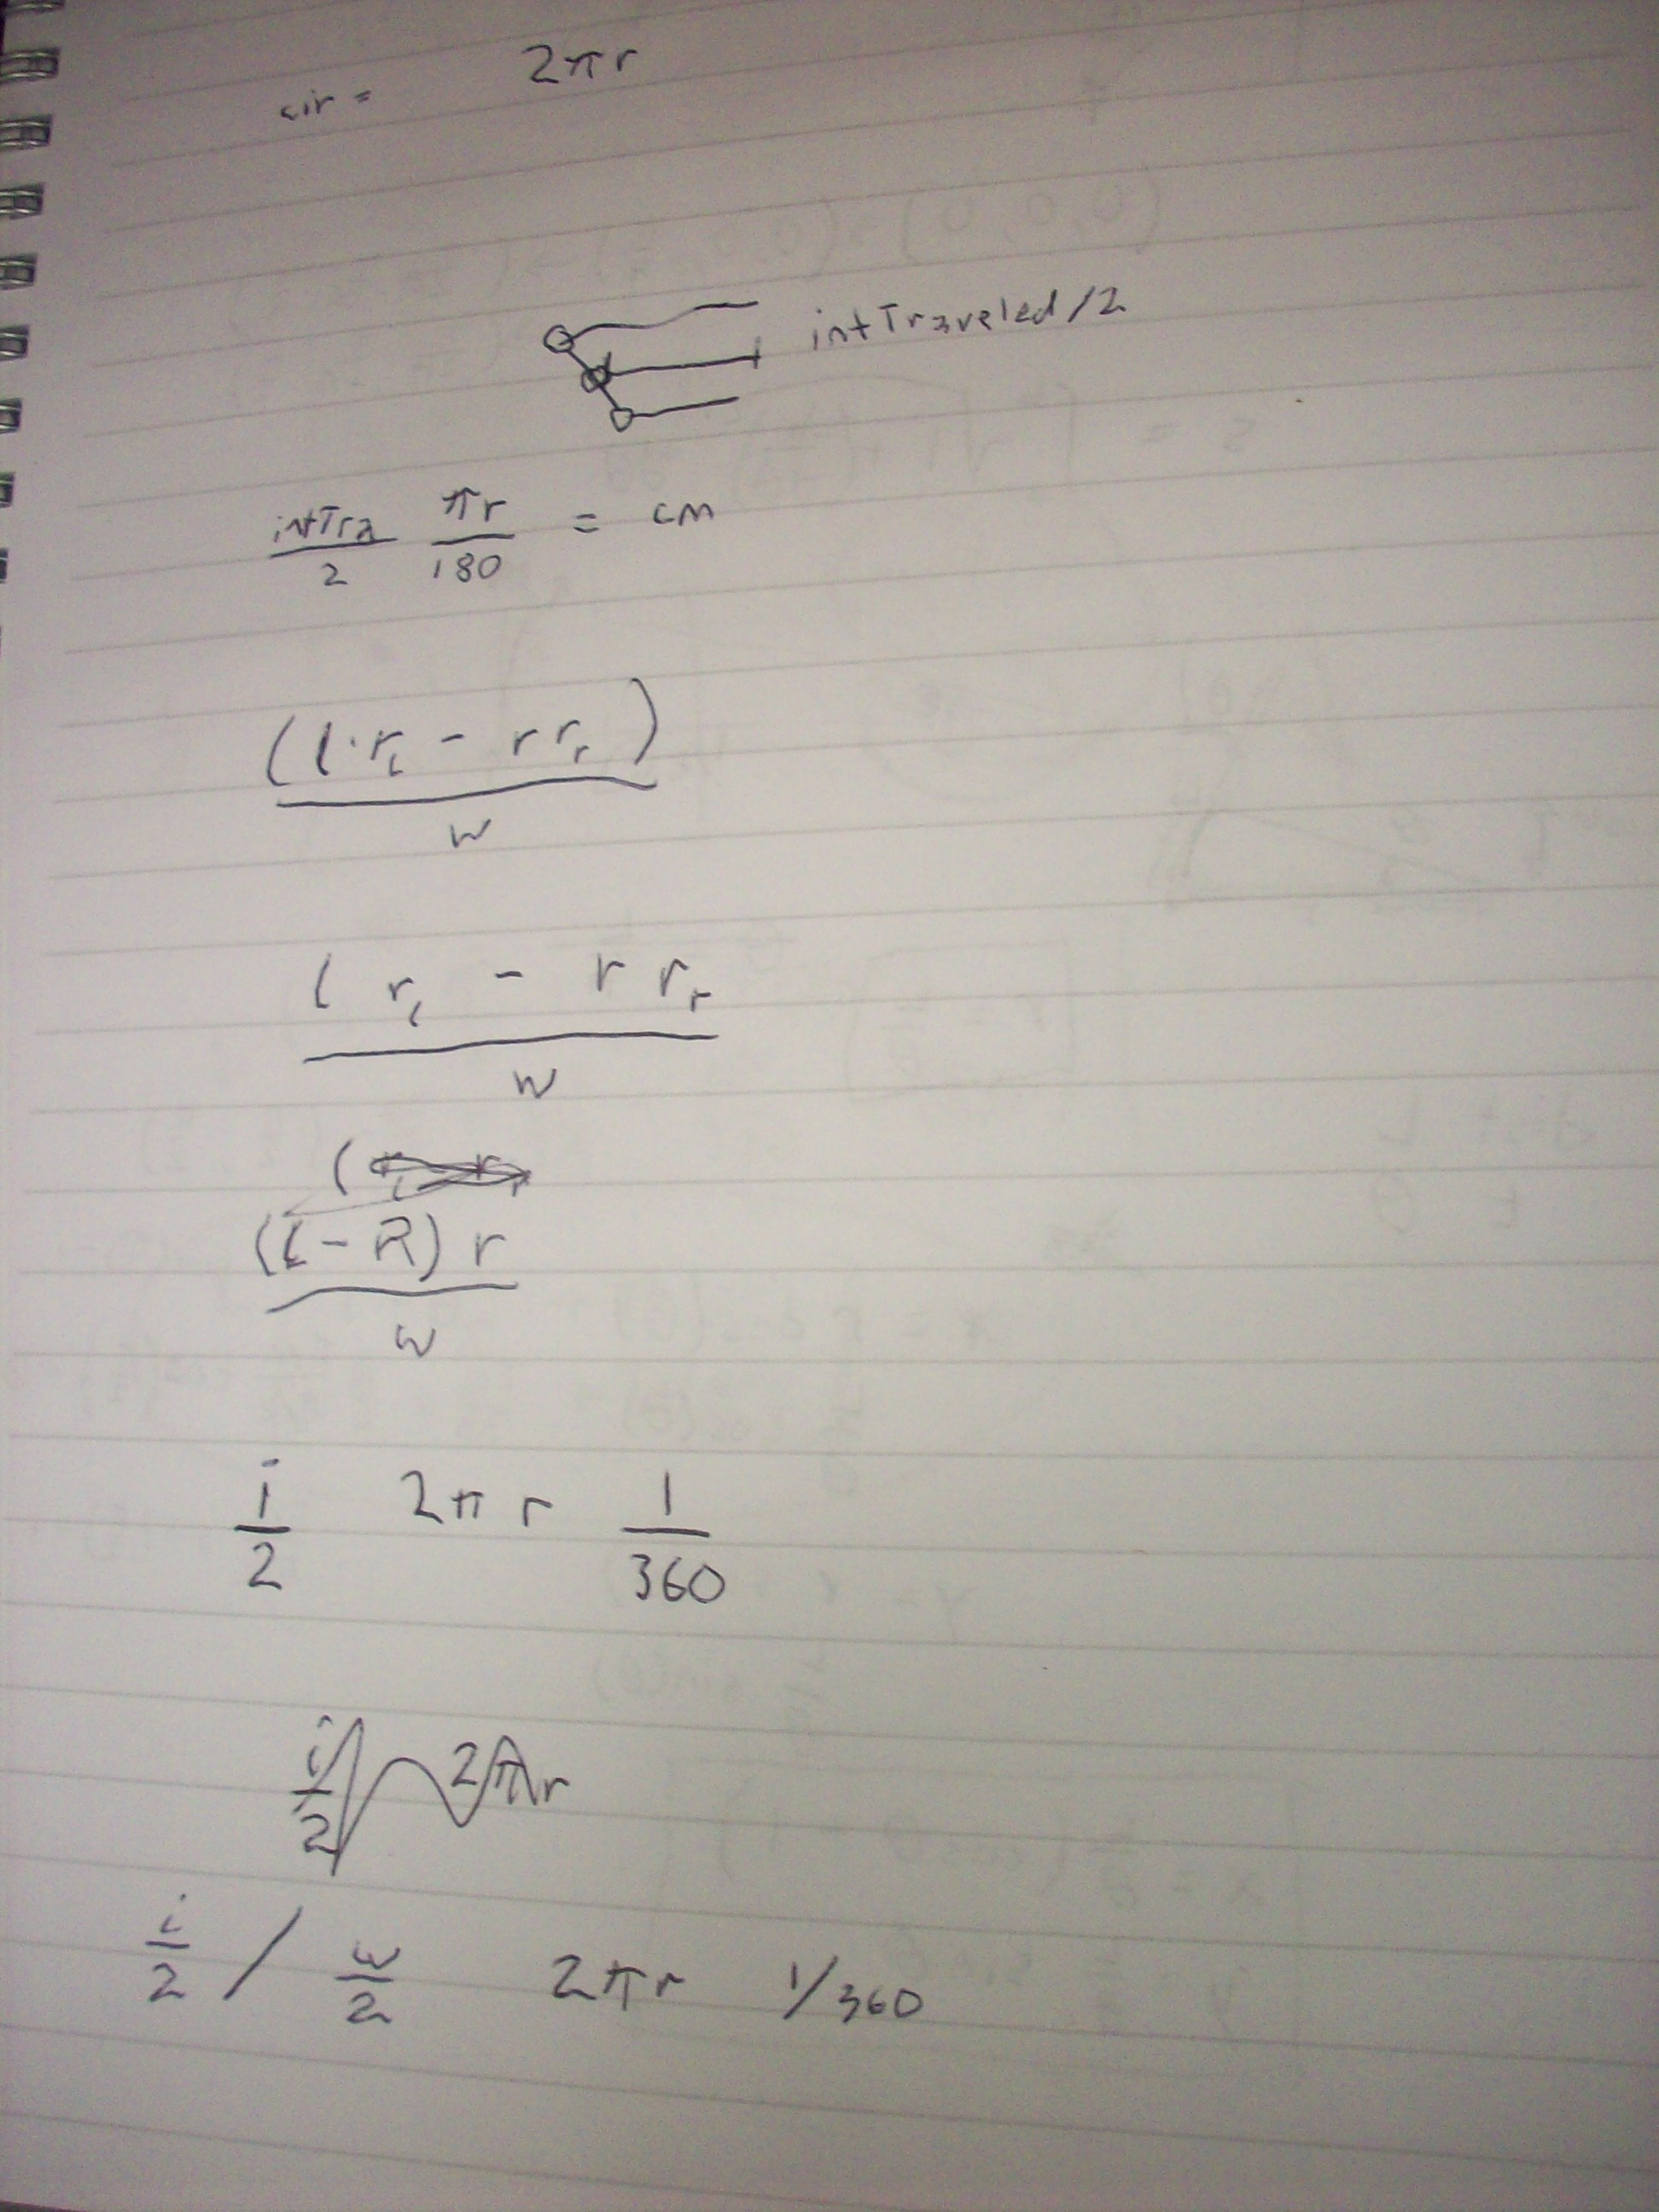 cir = 2πr
intTraveled/2
intTra/2 πr/180 = cm
(l·r_l - r r_r)/w
l r_l - r r_r/w
(l - R) r/w
i/2 2π r 1/360
i/2 2πr
i/2 / w/2 2πr 1/360